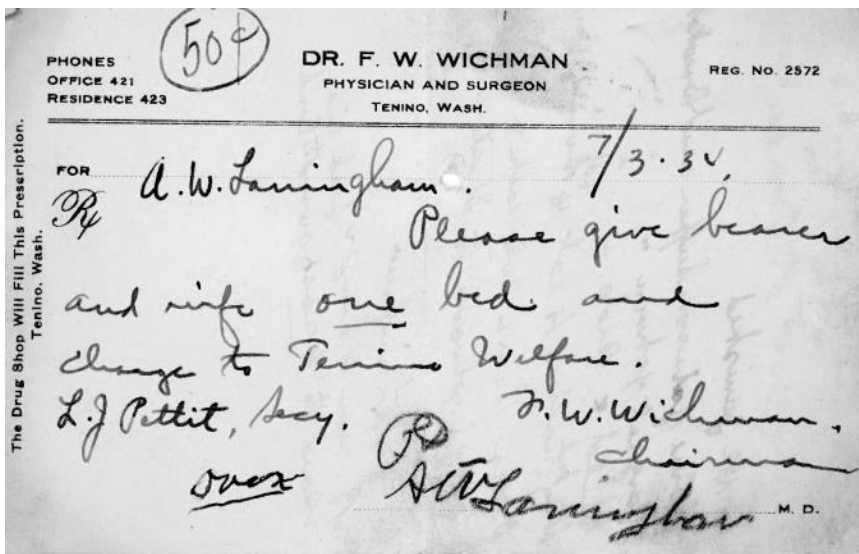 50¢
PHONES
OFFICE 421
RESIDENCE 423
DR. F. W. WICHMAN
PHYSICIAN AND SURGEON
TENINO, WASH.
REG. NO. 2572
The Drug Shop Will Fill This Prescription.
Tenino, Wash.
FOR A. W. Laningham. 7/3.34.
℞ Please give bearer
and wife one bed and
charge to Tenino Welfare.
L. J Pettit, Secy. F. W. Wichman.
Chairman
AW Laningham M. D.